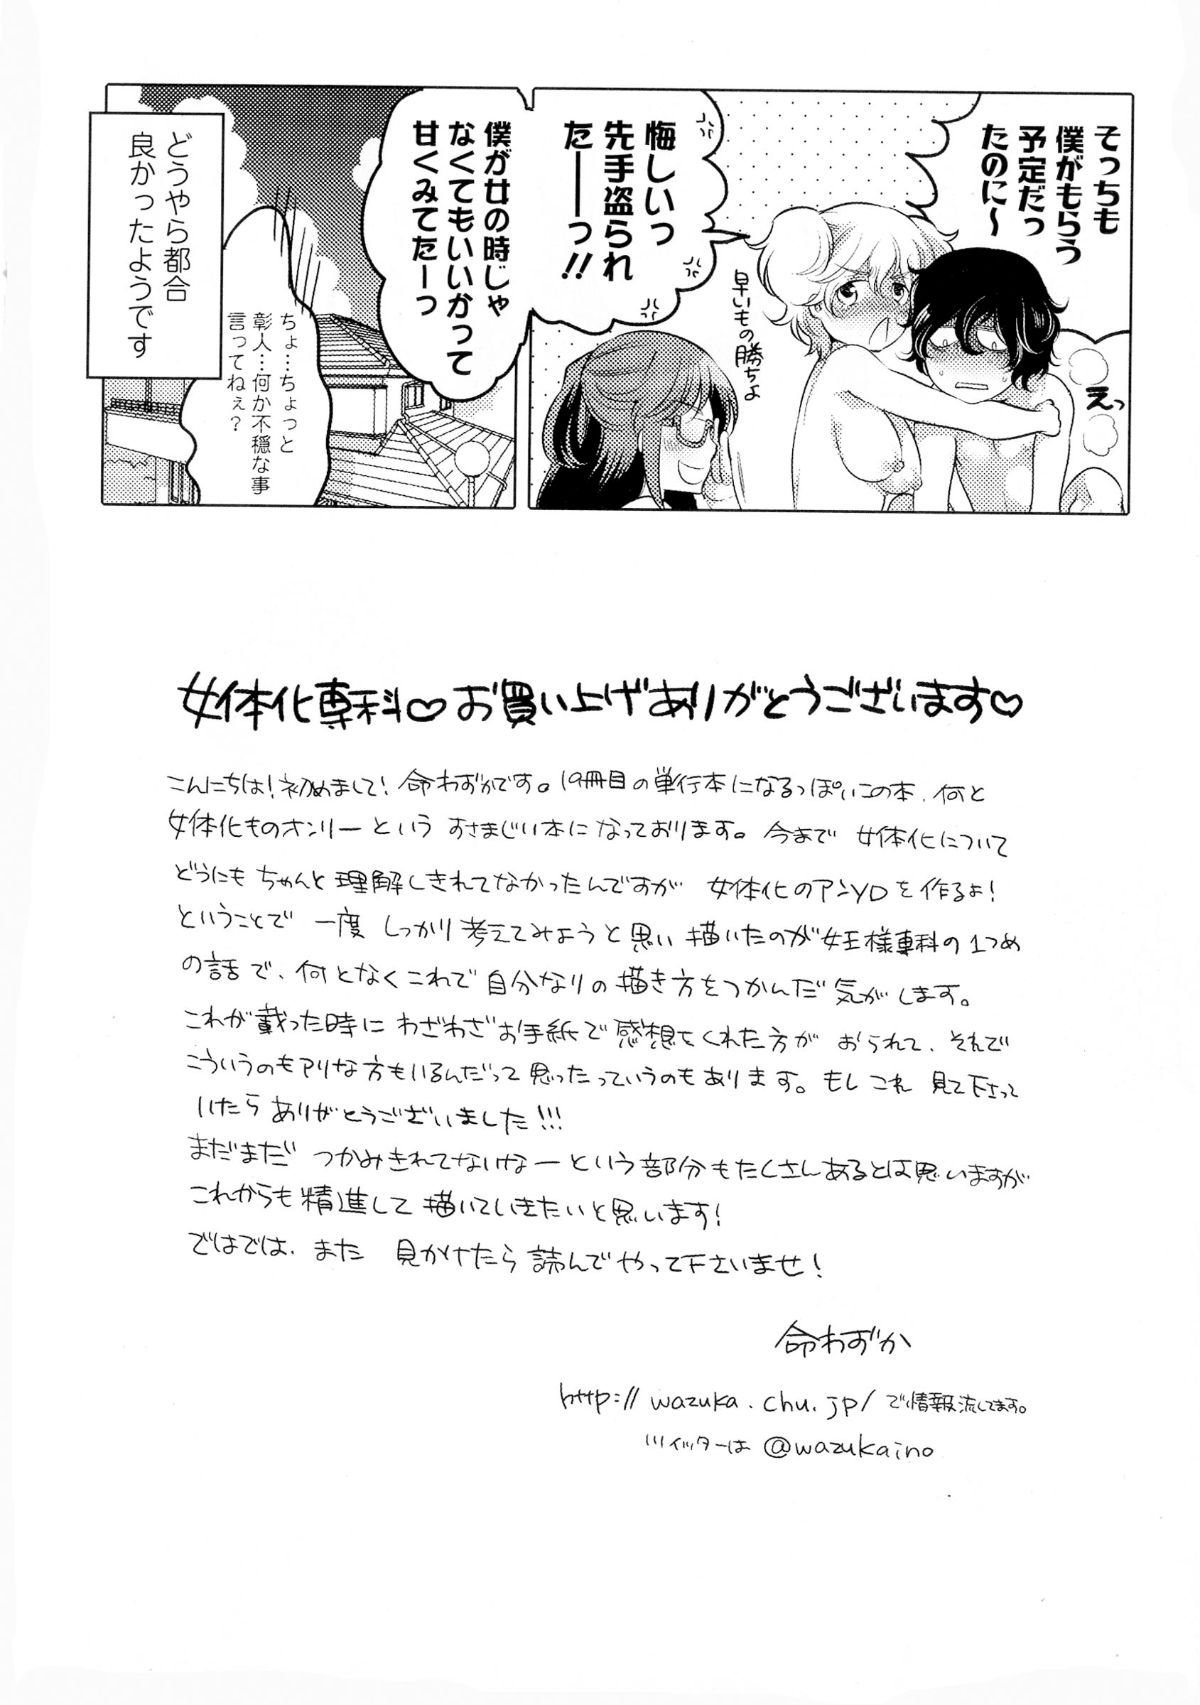 そっちも
僕がもらう
予定だっ
たのに～
えっ
悔しいっ
先手盗られ
たーーっ!!
早いもの勝ちよ
僕が女の時じゃ
なくてもいいかって
甘くみてたーっ
ちょ…ちょっと
彰人…何か不穏な事
言ってねぇ?
どうやら都合
良かったようです
女体化専科♡お買い上げありがとうございます♡
こんにちは!初めまして!命わずかです。19冊目の単行本になるっぽいこの本、何と
女体化ものオンリーという すさまじい本になっております。今まで 女体化について
どうにも ちゃんと理解しきれてなかったんですが 女体化のアンソロを作るよ!
ということで 一度 しっかり考えてみようと思い描いたのが女王様専科の1つめ
の話で、何となくこれで自分なりの描き方をつかんだ気がします。
これが載った時に わざわざお手紙で感想をくれた方が おられて、それで
こういうのもアリな方もいるんだって思ったっていうのもあります。もしこれ 見て下さって
いたら ありがとうございました!!!
まだまだ つかみきれてないなーという部分もたくさんあるとは思いますが
これからも精進して描いていきたいと思います!
ではでは、また 見かけたら読んでやって下さいませ!
命わずか
http://wazuka.chu.jp/で情報流してます。
ツイッターは @wazukaino